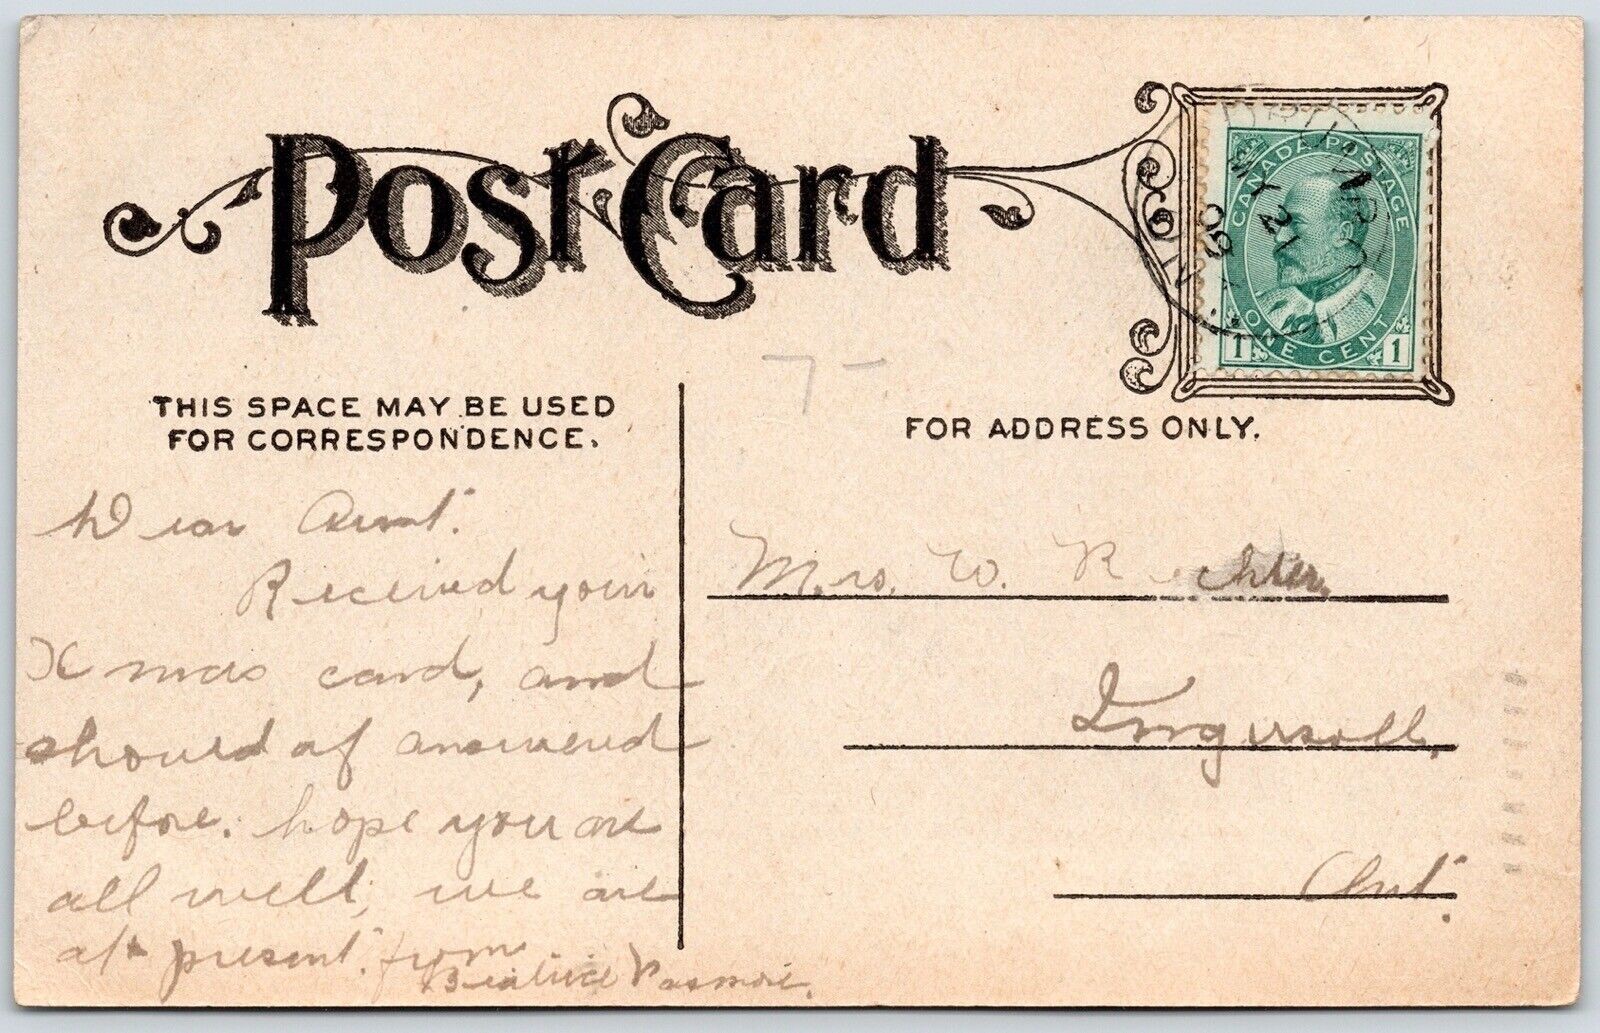 Post Card
THIS SPACE MAY BE USED
FOR CORRESPONDENCE.
FOR ADDRESS ONLY.
CANADA POSTAGE
1 ONE CENT 1
MY 21
09
7 -
Dear Aunt.
Received your
Xmas card, and
should of answered
before. hope you are
all well, we are
at present. from
Beatrice Passmore.
Mrs. W. Richter,
Ingersoll,
Ont.